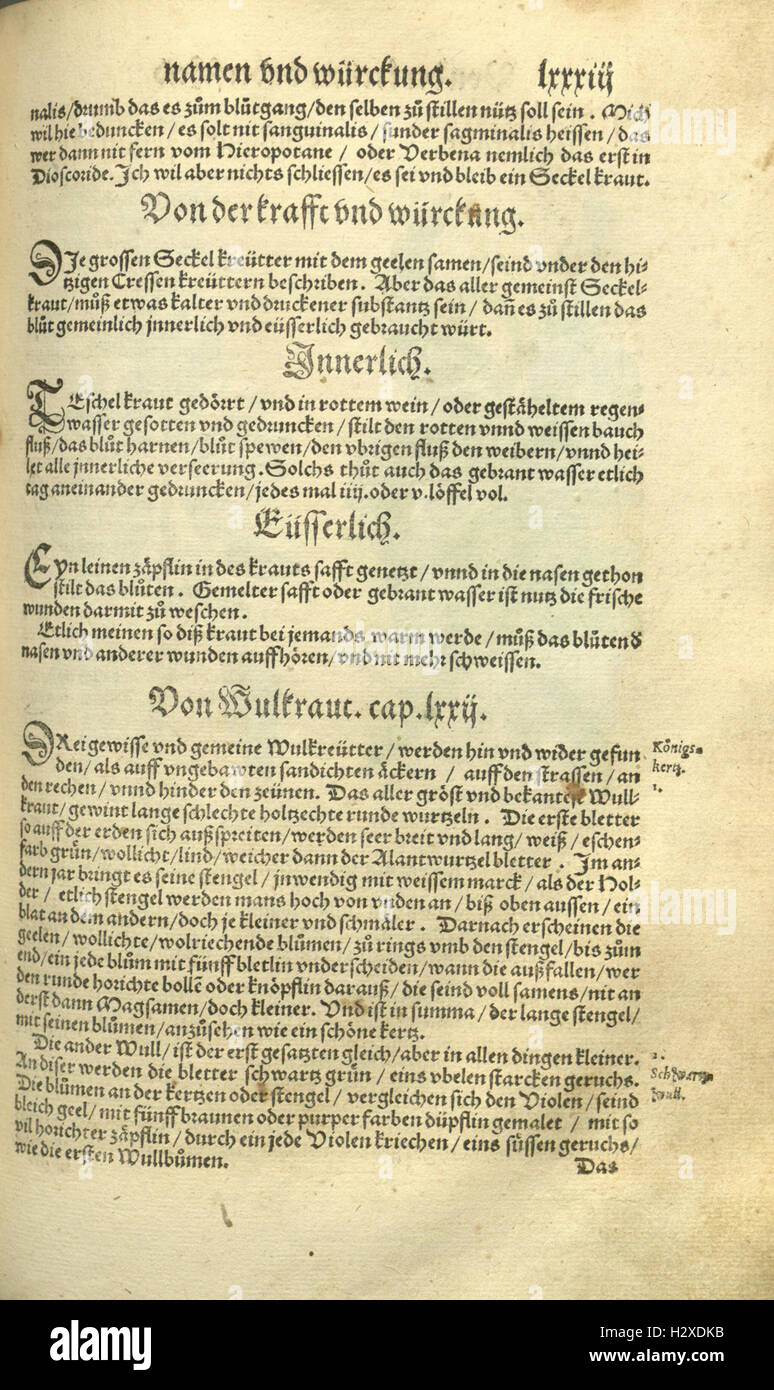 namen vnd würckung. lxxxiij
nalis/drumb das es zům blůtgang/den selben zů stillen nütz soll sein. Mich
wil hie beduncken/es solt nit sanguinalis/sunder sagminalis heissen/das
wer dann nit fern vom Hieropotane/oder Verbena nemlich das erst in
Dioscoride. Ich wil aber nichts schliessen/es sei vnd bleib ein Seckel kraut.
Von der krafft vnd würckung.
DJe grossen Seckel kreütter mit dem geelen samen/seind vnder den hi⸗
tzigen Cressen kreüttern beschriben. Aber das aller gemeinst Seckel⸗
kraut/můß etwas kalter vnd druckener substantz sein/dañ es zů stillen das
blůt gemeinlich jnnerlich vnd eüsserlich gebraucht würt.
Jnnerlich.
TEschelkraut gedörrt/vnd in rottem wein/oder gestäheltem regen⸗
wasser gesotten vnd gedruncken/stilt den rotten vnnd weissen bauch
fluß/das blůt harnen/blůt spewen/den vbrigen fluß den weibern/vnnd hei⸗
let alle jnnerliche verseerung. Solchs thůt auch das gebrant wasser etlich
tag aneinander gedruncken/jedes mal iiij. oder v. löffel vol.
Eüsserlich.
Eyn leinen zäpflin in des krauts safft genetzt/vnnd in die nasen gethon
stilt das blůten. Gemelter safft oder gebrant wasser ist nutz die frische
wunden darmit zů weschen.
Etlich meinen so diß kraut bei jemands warm werde/můß das blůtend
nasen vnd anderer wunden auffhören/vnd nit mehr schweissen.
Von Wulkraut. cap. lxxij.
DReigewisse vnd gemeine Wulkreütter/werden hin vnd wider gefun
den/als auff vngebawten sandichten äckern/auff den strassen/an
den rechen/vnnd hinder den zeünen. Das aller gröst vnd bekantest Wull⸗
kraut/gewint lange schlechte holtzechte runde wurtzeln. Die erste bletter
so auff der erden sich außspreiten/werden seer breit vnd lang/weiß/eschen⸗
farb grün/wollicht/lind/weicher dann der Alantwurtzel bletter. Im an⸗
dern jar bringt es seine stengel/inwendig mit weissem marck/als der Hol⸗
der/etlich stengel werden mans hoch von vnden an/biß oben aussen/ein
blat an dem andern/doch je kleiner vnd schmäler. Darnach erscheinen die
geelen/wollichte/wolriechende blůmen/zů rings vmb den stengel/bis zům
end/ein jede blům mit fünff bletlin vnderscheiden/wann die außfallen/wer
den runde horichte bolle̅ oder knöpflin darauß/die seind voll samens/nit an
derst dann Magsamen/doch kleiner. Vnd ist in summa/der lange stengel/
mit seinen blůmen/anzůsehen wie ein schöne kertz.
Die ander Wull/ist der erst gesatzten gleich/aber in allen dingen kleiner.
An diser werden die bletter schwartz grün/eins vbelen starcken geruchs.
Die blůmen an der kertzen oder stengel/vergleichen sich den Violen/seind
bleich geel/mit fünff braunen oder purper farben düpflin gemalet/mit so
vil horichter zäpflin/durch ein jede Violen kriechen/eins süssen geruchs/
wie die ersten Wullbůmen.
Das
Königs⸗
kertz.
1.
2.
Schwartz
wull.
alamy
alamy
alamy
Image ID: H2XDKB
www.alamy.com